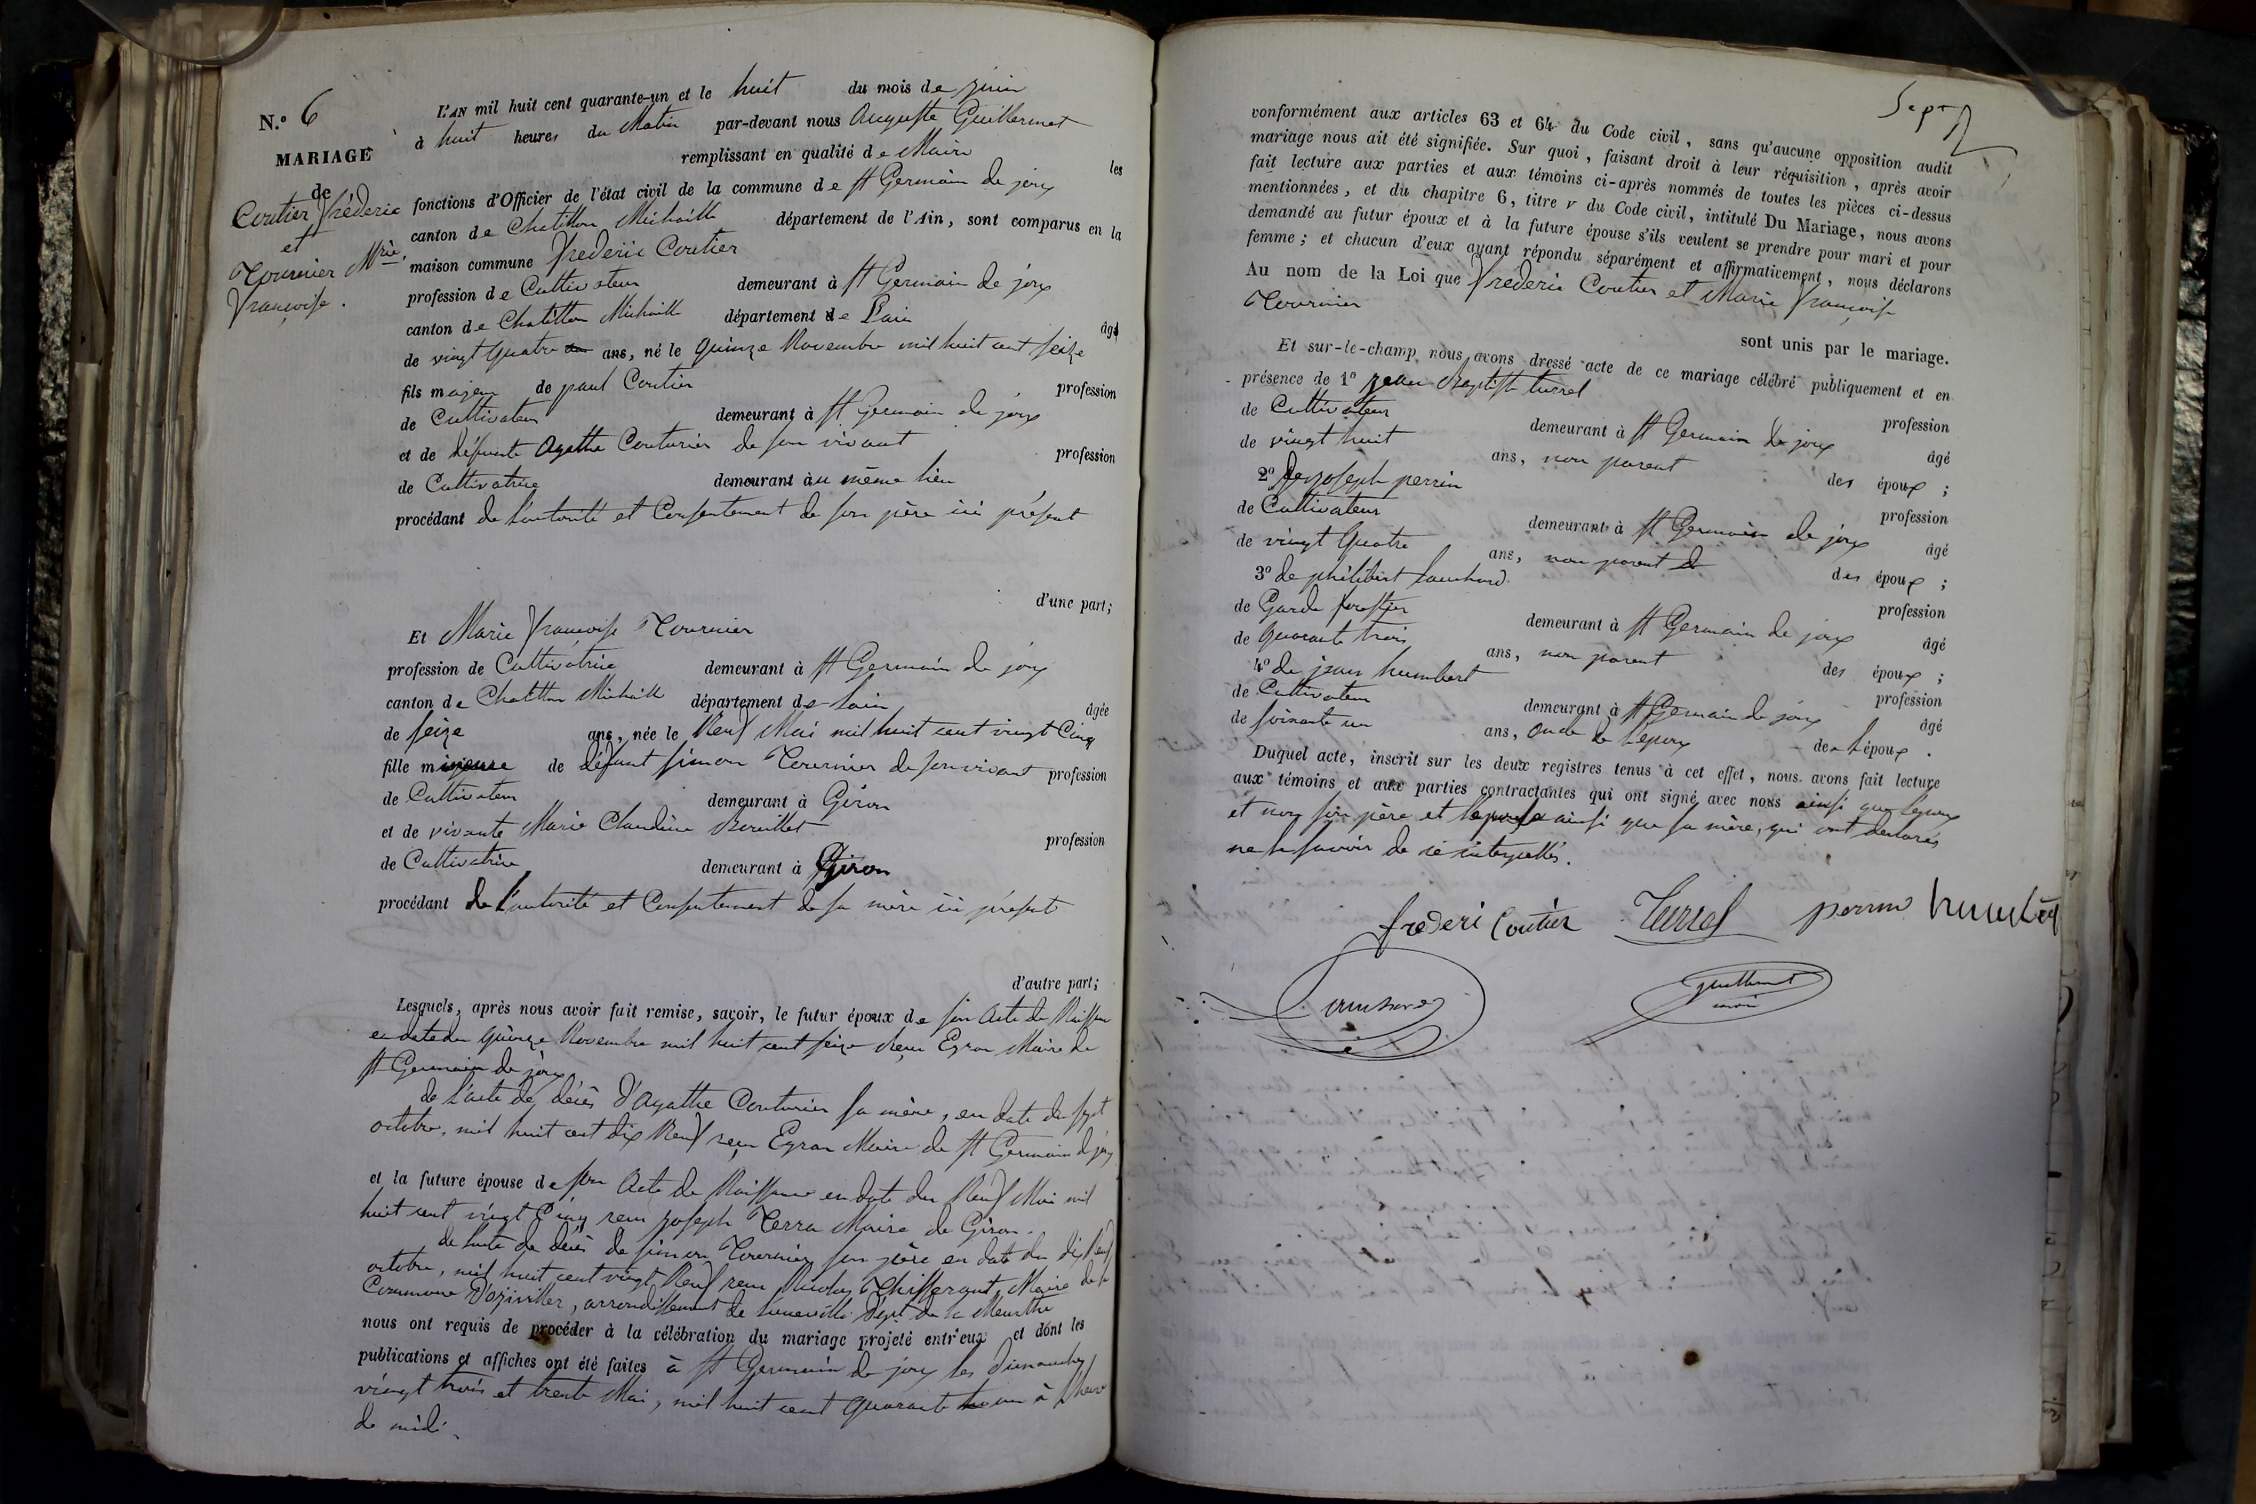 N.° 6
MARIAGE
de
Coutier frédéric
et
Tournier Mrie.
françoise.
L'AN mil huit cent quarante-un et le huit du mois de juin
à huit heures du Matin par-devant nous Auguste Guillermet
remplissant en qualité de Maire les
fonctions d'Officier de l'état civil de la commune de St Germain de joux
canton de Chatillon Michaille département de l'Ain, sont comparus en la
maison commune frederic Coutier
profession de Cultivateur demeurant à St Germain de joux
canton de Chatillon Michaille département de L'ain âgé
de vingt quatre ans, né le quinze Novembre mil huit cent seize
fils majeur de paul Coutier profession
de Cultivateur demeurant à St Germain de joux
et de défunte Agathe Couturier de son vivant profession
de Cultivatrice demeurant au même lieu
procédant de L'autorité et Consentement de son père ici présent
d'une part;
Et Marie françoise Tournier
profession de Cultivatrice demeurant à St Germain de joux
canton de Chatillon Michaille département de Lain âgée
de seize ans, née le Neuf Mai mil huit cent vingt Cinq
fille mineure de défunt simon Tournier de son vivant profession
de Cultivateur demeurant à Giron
et de vivante Marie Claudine Bouillet profession
de Cultivatrice demeurant à Giron
procédant de L'autorité et Consentement de sa mère ici présent
d'autre part;
Lesquels, après nous avoir fait remise, savoir, le futur époux de son Acte de Naissance
en date du quinze Novembre mil huit cent seize reçu Egran Maire de
St Germain de joux
de L'acte de décès D'Agathe Couturier sa mère, en date du sept
octobre, mil huit cent dix Neuf reçu Egran Maire de St Germain de joux
et la future épouse de son Acte de Naissance en date du Neuf Mai mil
huit cent vingt Cinq reçu joseph Terra Maire de Giron.
de Lacte de décès de simon Tournier son père en date du dix Neuf
octobre, mil huit cent vingt Neuf reçu Nicolas Maire de la
Commune D'aziviller, arrondissement de Luneville Dept. de la Meurthe
nous ont requis de procéder à la célébration du mariage projeté entr'eux et dont les
publications et affiches ont été faites à St Germain de joux les dimanches
vingt trois et trente Mai, mil huit cent quarante un à l'heure
de midi.
Sept
conformément aux articles 63 et 64 du Code civil, sans qu'aucune opposition audit
mariage nous ait été signifiée. Sur quoi, faisant droit à leur réquisition, après avoir
fait lecture aux parties et aux témoins ci-après nommés de toutes les pièces ci-dessus
mentionnées, et du chapitre 6, titre v du Code civil, intitulé Du Mariage, nous avons
demandé au futur époux et à la future épouse s'ils veulent se prendre pour mari et pour
femme; et chacun d'eux ayant répondu séparément et affirmativement, nous déclarons
Au nom de la Loi que frederic Coutier et Marie françoise
Tournier
sont unis par le mariage.
Et sur-le-champ nous avons dressé acte de ce mariage célébré publiquement et en
présence de 1° jean Baptiste turrel
profession
de Cultivateur demeurant à St Germain de joux âgé
de vingt huit ans, non parent des époux;
2° de joseph perrin profession
de Cultivateur demeurant à St Germain de joux âgé
de vingt Quatre ans, non parent des époux;
3° de philibert profession
de Garde forestier demeurant à St Germain de joux âgé
de quarante trois ans, non parent des époux;
4° de jean humbert profession
de Cultivateur demeurant à St Germain de joux âgé
de soixante un ans, oncle de L'époux de L'époux.
Duquel acte, inscrit sur les deux registres tenus à cet effet, nous avons fait lecture
aux témoins et aux parties contractantes qui ont signé avec nous ainsi que lepoux
et non son père et lepouse ainsi que sa mère, qui ont declarés
ne le savoir de ce interpellés.
frederi Coutier Turrel perrin humbert
guillermet
maire